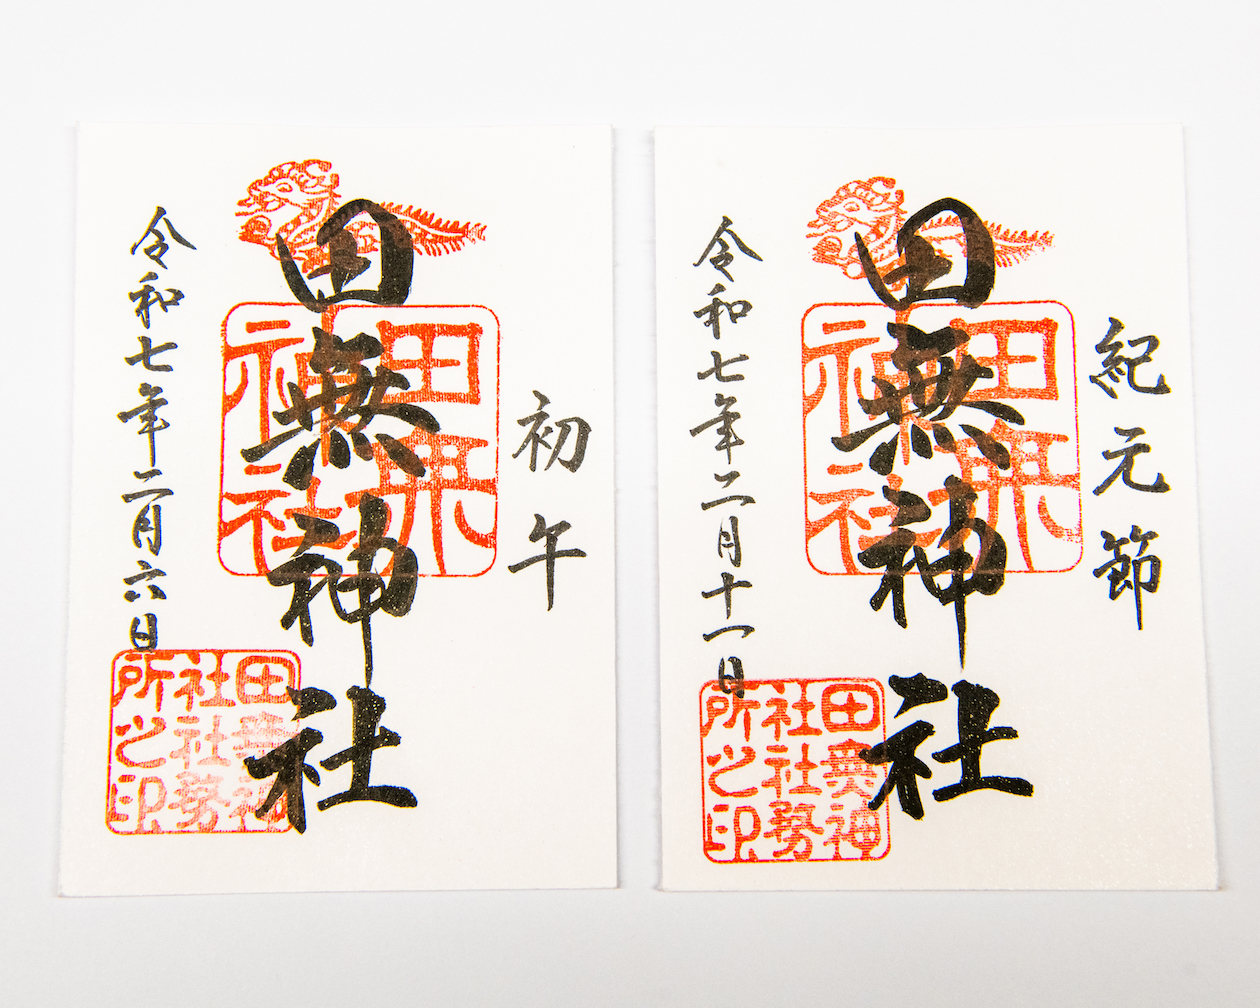 初午
田無神社
令和七年二月六日
田無
神社
田無神
社社務
所之印
紀元節
田無神社
令和七年二月十一日
田無
神社
田無神
社社務
所之印